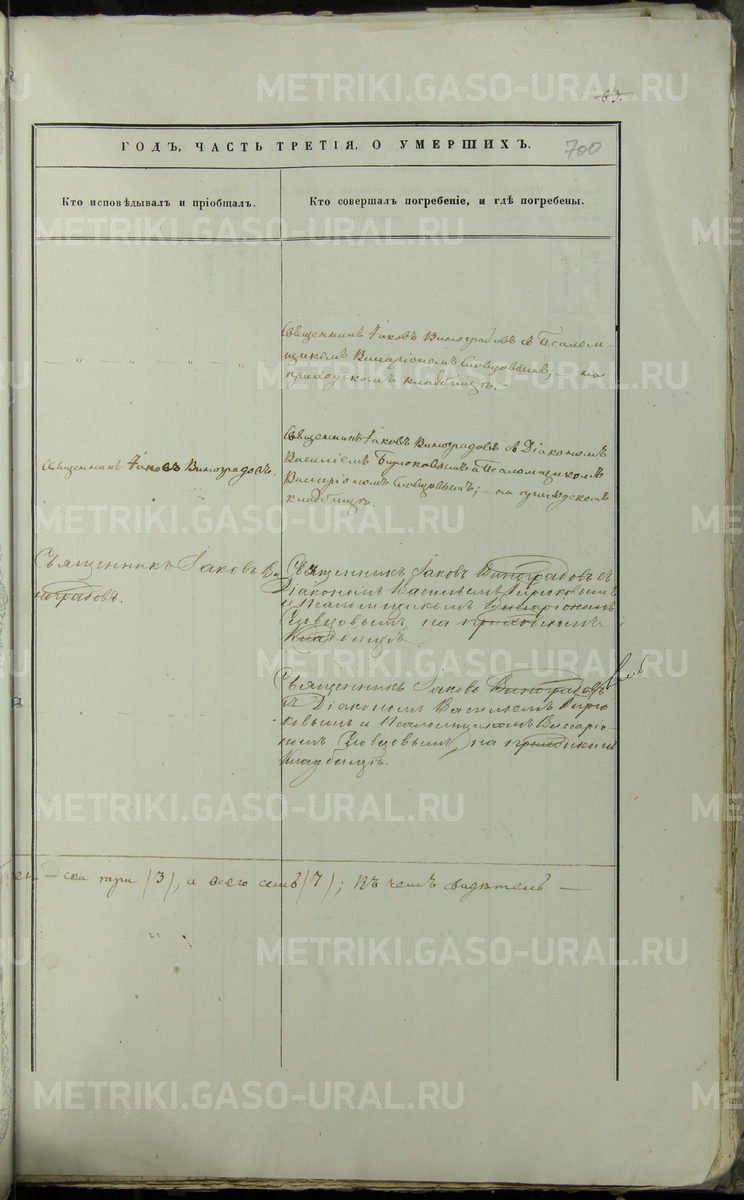 63.
ГОДЪ, ЧАСТЬ ТРЕТІЯ, О УМЕРШИХЪ.
700
Кто исповѣдывалъ и пріобщалъ.
Кто совершалъ погребеніе, и гдѣ погребены.
— „ — „ — „ — „
Священникъ Іаковъ Виноградовъ съ Псалом-
щикомъ Виссаріономъ Словцовымъ; — на
приходскомъ кладбищѣ. —
Священникъ Іаковъ Виноградовъ.
Священникъ Іаковъ Виноградовъ съ Діакономъ
Василіемъ Бирюковымъ и Псаломщикомъ
Виссаріономъ Словцовымъ; — на приходскомъ
кладбищѣ.
Священникъ Іаковъ Ви-
ноградовъ.
Священникъ Іаковъ Виноградовъ съ
Діакономъ Васильемъ Бирюковымъ
и Псаломщикомъ Виссаріономъ
Словцовымъ, на приходскомъ
Кладбищѣ.
Священникъ Іаковъ Виноградовъ
съ Діакономъ Васильемъ Бирю-
ковымъ и Псаломщикомъ Виссаріо-
номъ Словцовымъ, на приходскомъ
Кладбищѣ.
ски три (3), а всего семь (7); Въ чемъ свидѣтель —
METRIKI.GASO-URAL.RU